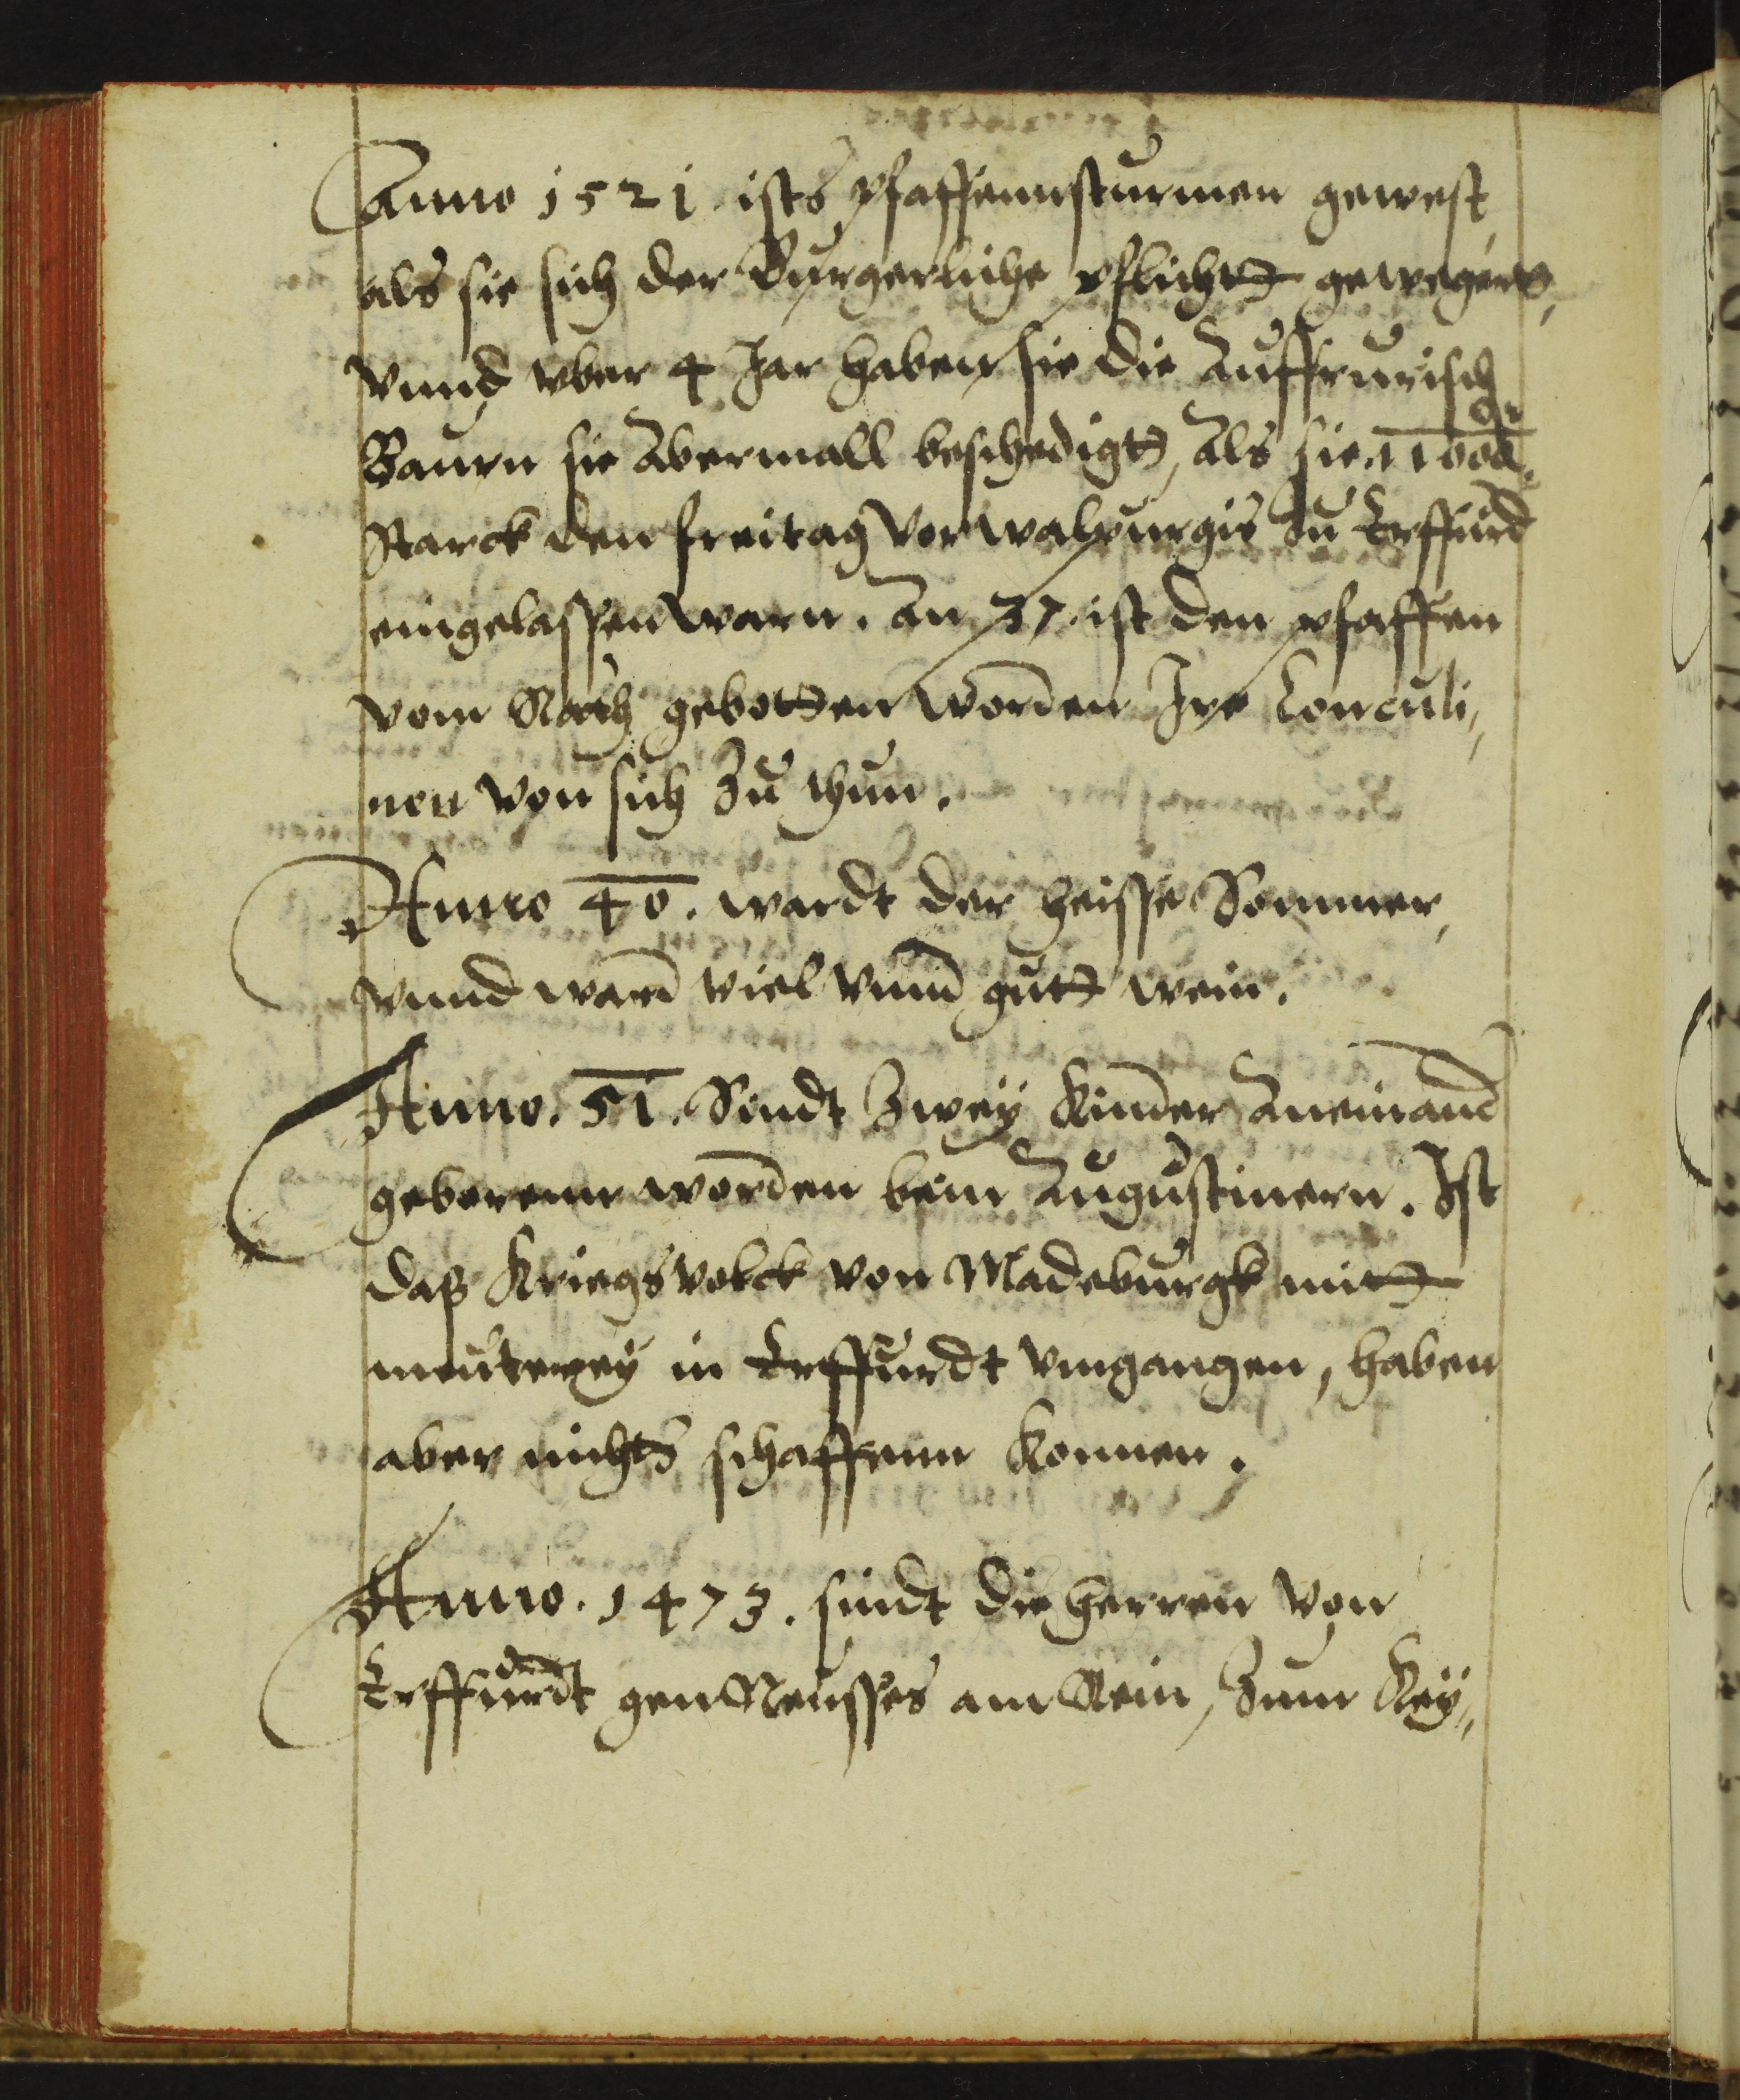 Anno 1521. ists pfaffennsturmen gewest,
als sie sich der Burgerliche pflichtt gewegert,
Vnnd vber 4 Jar haben sie die Auffrurisch
Baurn sie Abermall beschedigtt, Als sie 11000
starck den freitag Vor Walpurgis Zu Erffurd
eingelassen warn. An 37. ist den pfaffen
vom Rath gebotten worden Ire Concubi,,
nen von sich Zu thun.
Anno 40. wardt der heisse Sommer,
Vnnd ward viel Vnnd gutt wein.
Anno. 51. Sindt Zwey Kinder Aneinand
geborenn worden beim Augustinern. Ist
daß Kriegsvolck von Madeburgk mitt
meuterey in Erffurdt vmgangen, haben
aber nichts schaffenn konnen.
Anno. 1473. sindt die herren von
Erffurdt gen Neusses am Rein, Zum Key,,